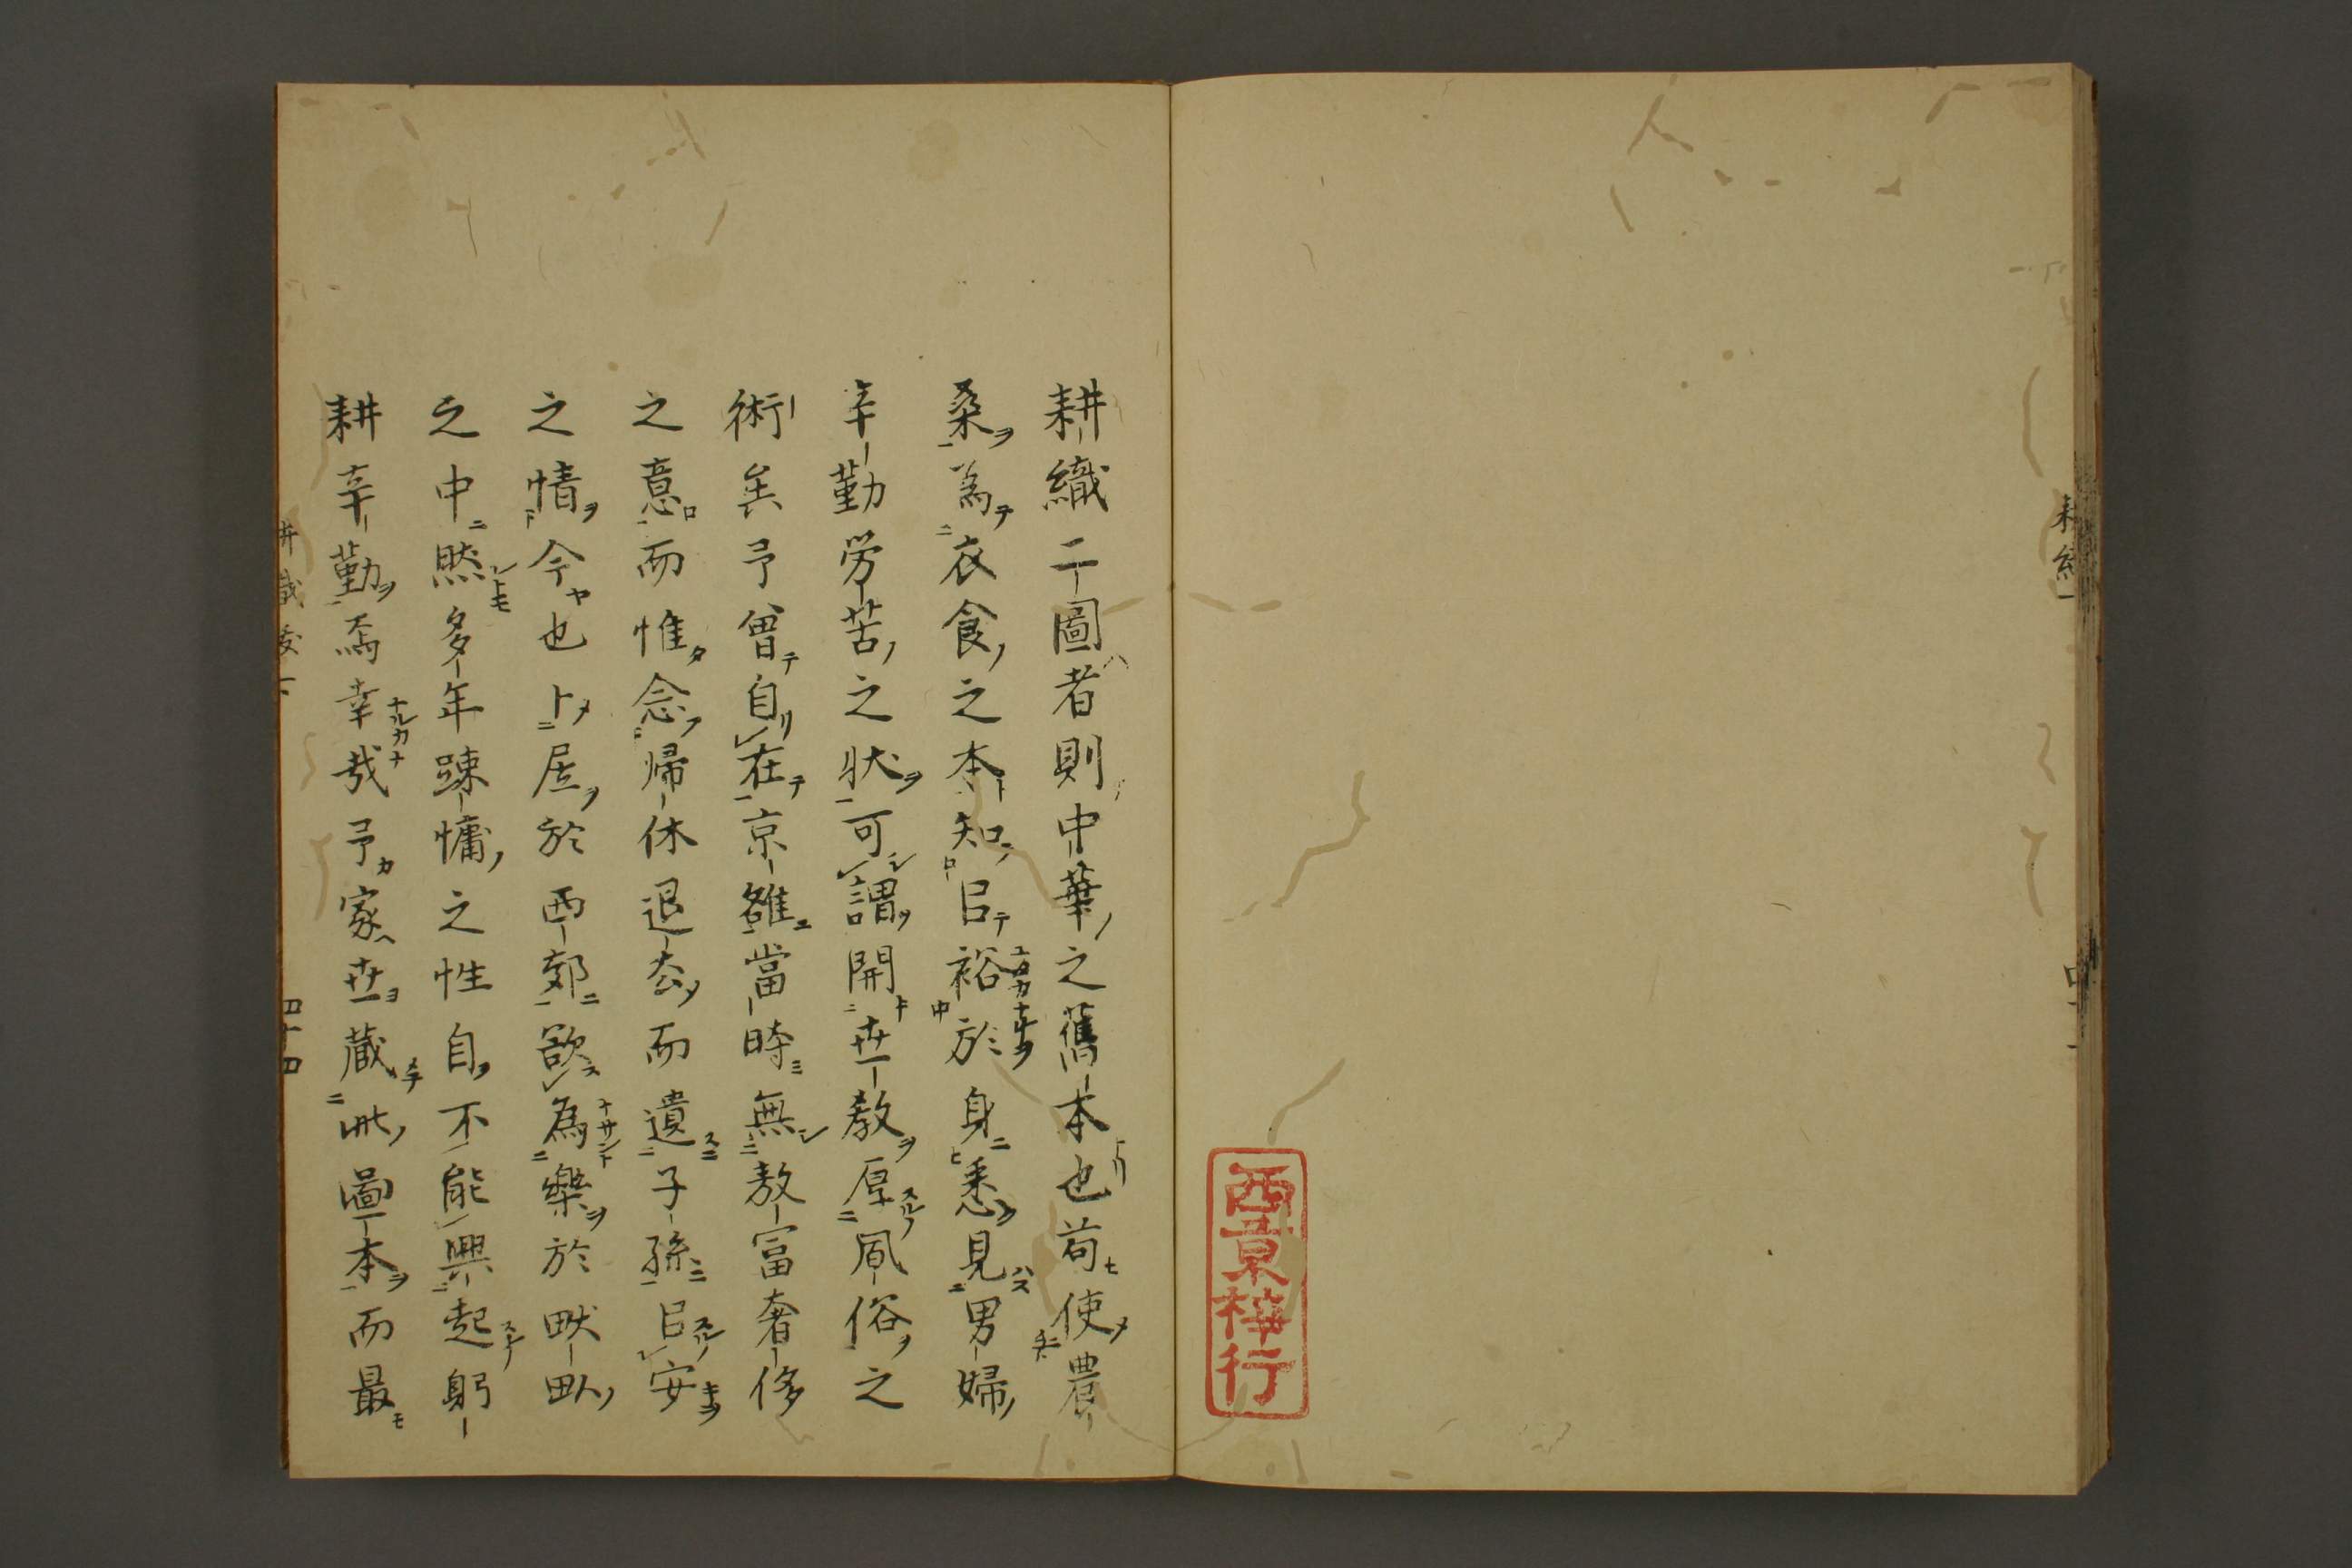 西京梓行
耕織二圖者則中華之舊本也苟使農
桑為衣食之本知㠯裕於身悉見男婦
辛勤労苦之状可謂開丗教厚風俗之
術矣予曽自在京雖當時無敖富奢侈
之意而惟念帰休退去而遺子孫㠯安
之情今也卜居於西郊欲為樂於畎畝
之中然多年踈慵之性自不能興起躬
耕辛勤焉幸哉予家丗蔵此圖本而最
四十四